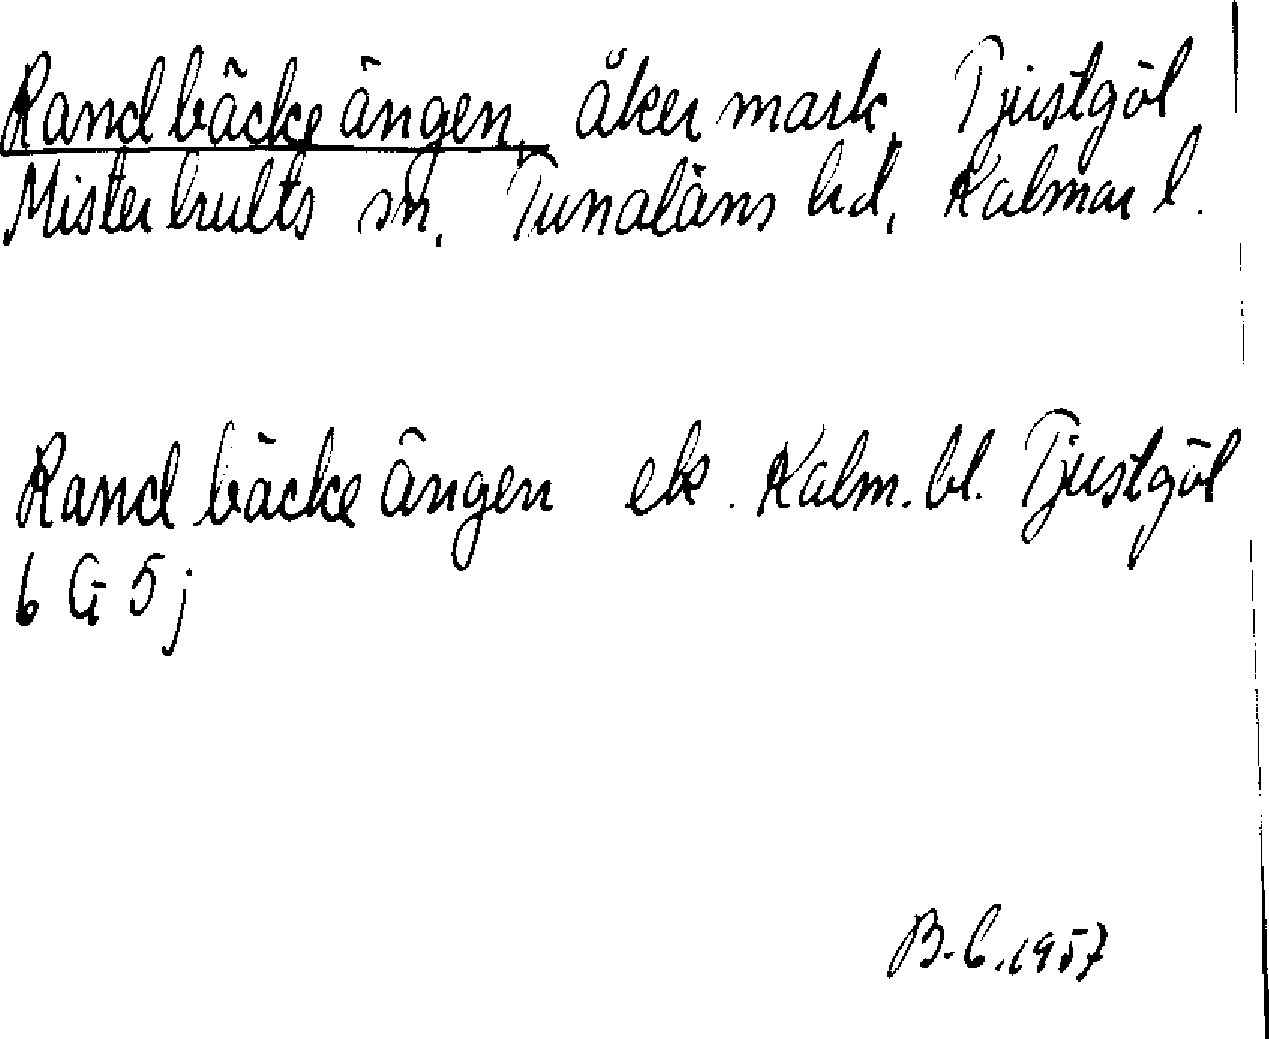 Randbäckeängen, åkermark, Tjustgöl
Misterhults sn, Tunaläns hd, Kalmar l.
Randbäckeängen ek. Kalm. bl. Tjustgöl
6 G 5 j
B-b. 1957